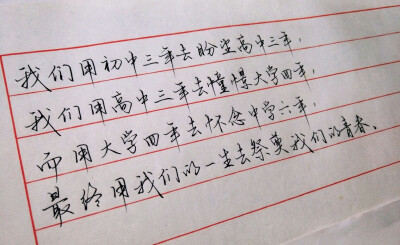 我们用初中三年去盼望高中三年,
我们用高中三年去憧憬大学四年,
而用大学四年去怀念中学六年,
最终用我们的一生去祭奠我们的青春、